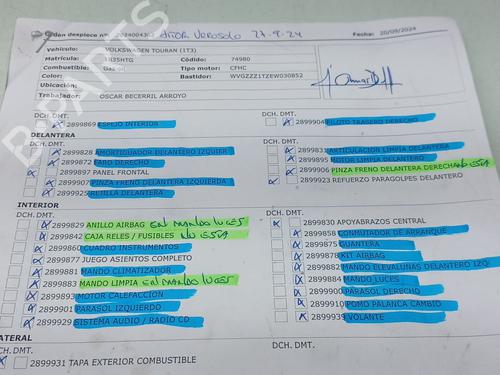 Orden despiece nº
27-9-24
Fecha: 20/09/2024
Vehículo: VOLKSWAGEN TOURAN (1T3)
Matrícula: 1835HTG Código: 74980
Combustible: Gasoil Tipo motor: CFHC
Color: Bastidor: WVGZZZ1TZEW030852
Ubicación:
Trabajador: OSCAR BECERRIL ARROYO
DCH. DMT. DCH. DMT.
2899869 ESPEJO INTERIOR 2899904 PILOTO TRASERO DERECHO
DELANTERA
DCH. DMT. DCH. DMT.
2899828 AMORTIGUADOR DELANTERO IZQUIER 2899831 ARTICULACION LIMPIA DELANTERA
2899872 FARO DERECHO 2899895 MOTOR LIMPIA DELANTERO
2899897 PANEL FRONTAL 2899906 PINZA FRENO DELANTERA DERECHA NO ESSA
2899907 PINZA FRENO DELANTERA IZQUIERDA 2899923 REFUERZO PARAGOLPES DELANTERO
2899925 REJILLA DELANTERA
INTERIOR
DCH. DMT. DCH. DMT.
2899829 ANILLO AIRBAG EN MANDO LUCES 2899830 APOYABRAZOS CENTRAL
2899842 CAJA RELES / FUSIBLES NO ESSA 2899858 CONMUTADOR DE ARRANQUE
2899860 CUADRO INSTRUMENTOS 2899875 GUANTERA
2899877 JUEGO ASIENTOS COMPLETO 2899878 KIT AIRBAG
2899881 MANDO CLIMATIZADOR 2899882 MANDO ELEVALUNAS DELANTERO IZQ
2899883 MANDO LIMPIA EN MANDO LUCES 2899884 MANDO LUCES
2899893 MOTOR CALEFACCION 2899900 PARASOL DERECHO
2899901 PARASOL IZQUIERDO 2899910 POMO PALANCA CAMBIO
2899929 SISTEMA AUDIO / RADIO CD 2899939 VOLANTE
LATERAL
DCH. DMT. DCH. DMT.
2899931 TAPA EXTERIOR COMBUSTIBLE
B-PARTS